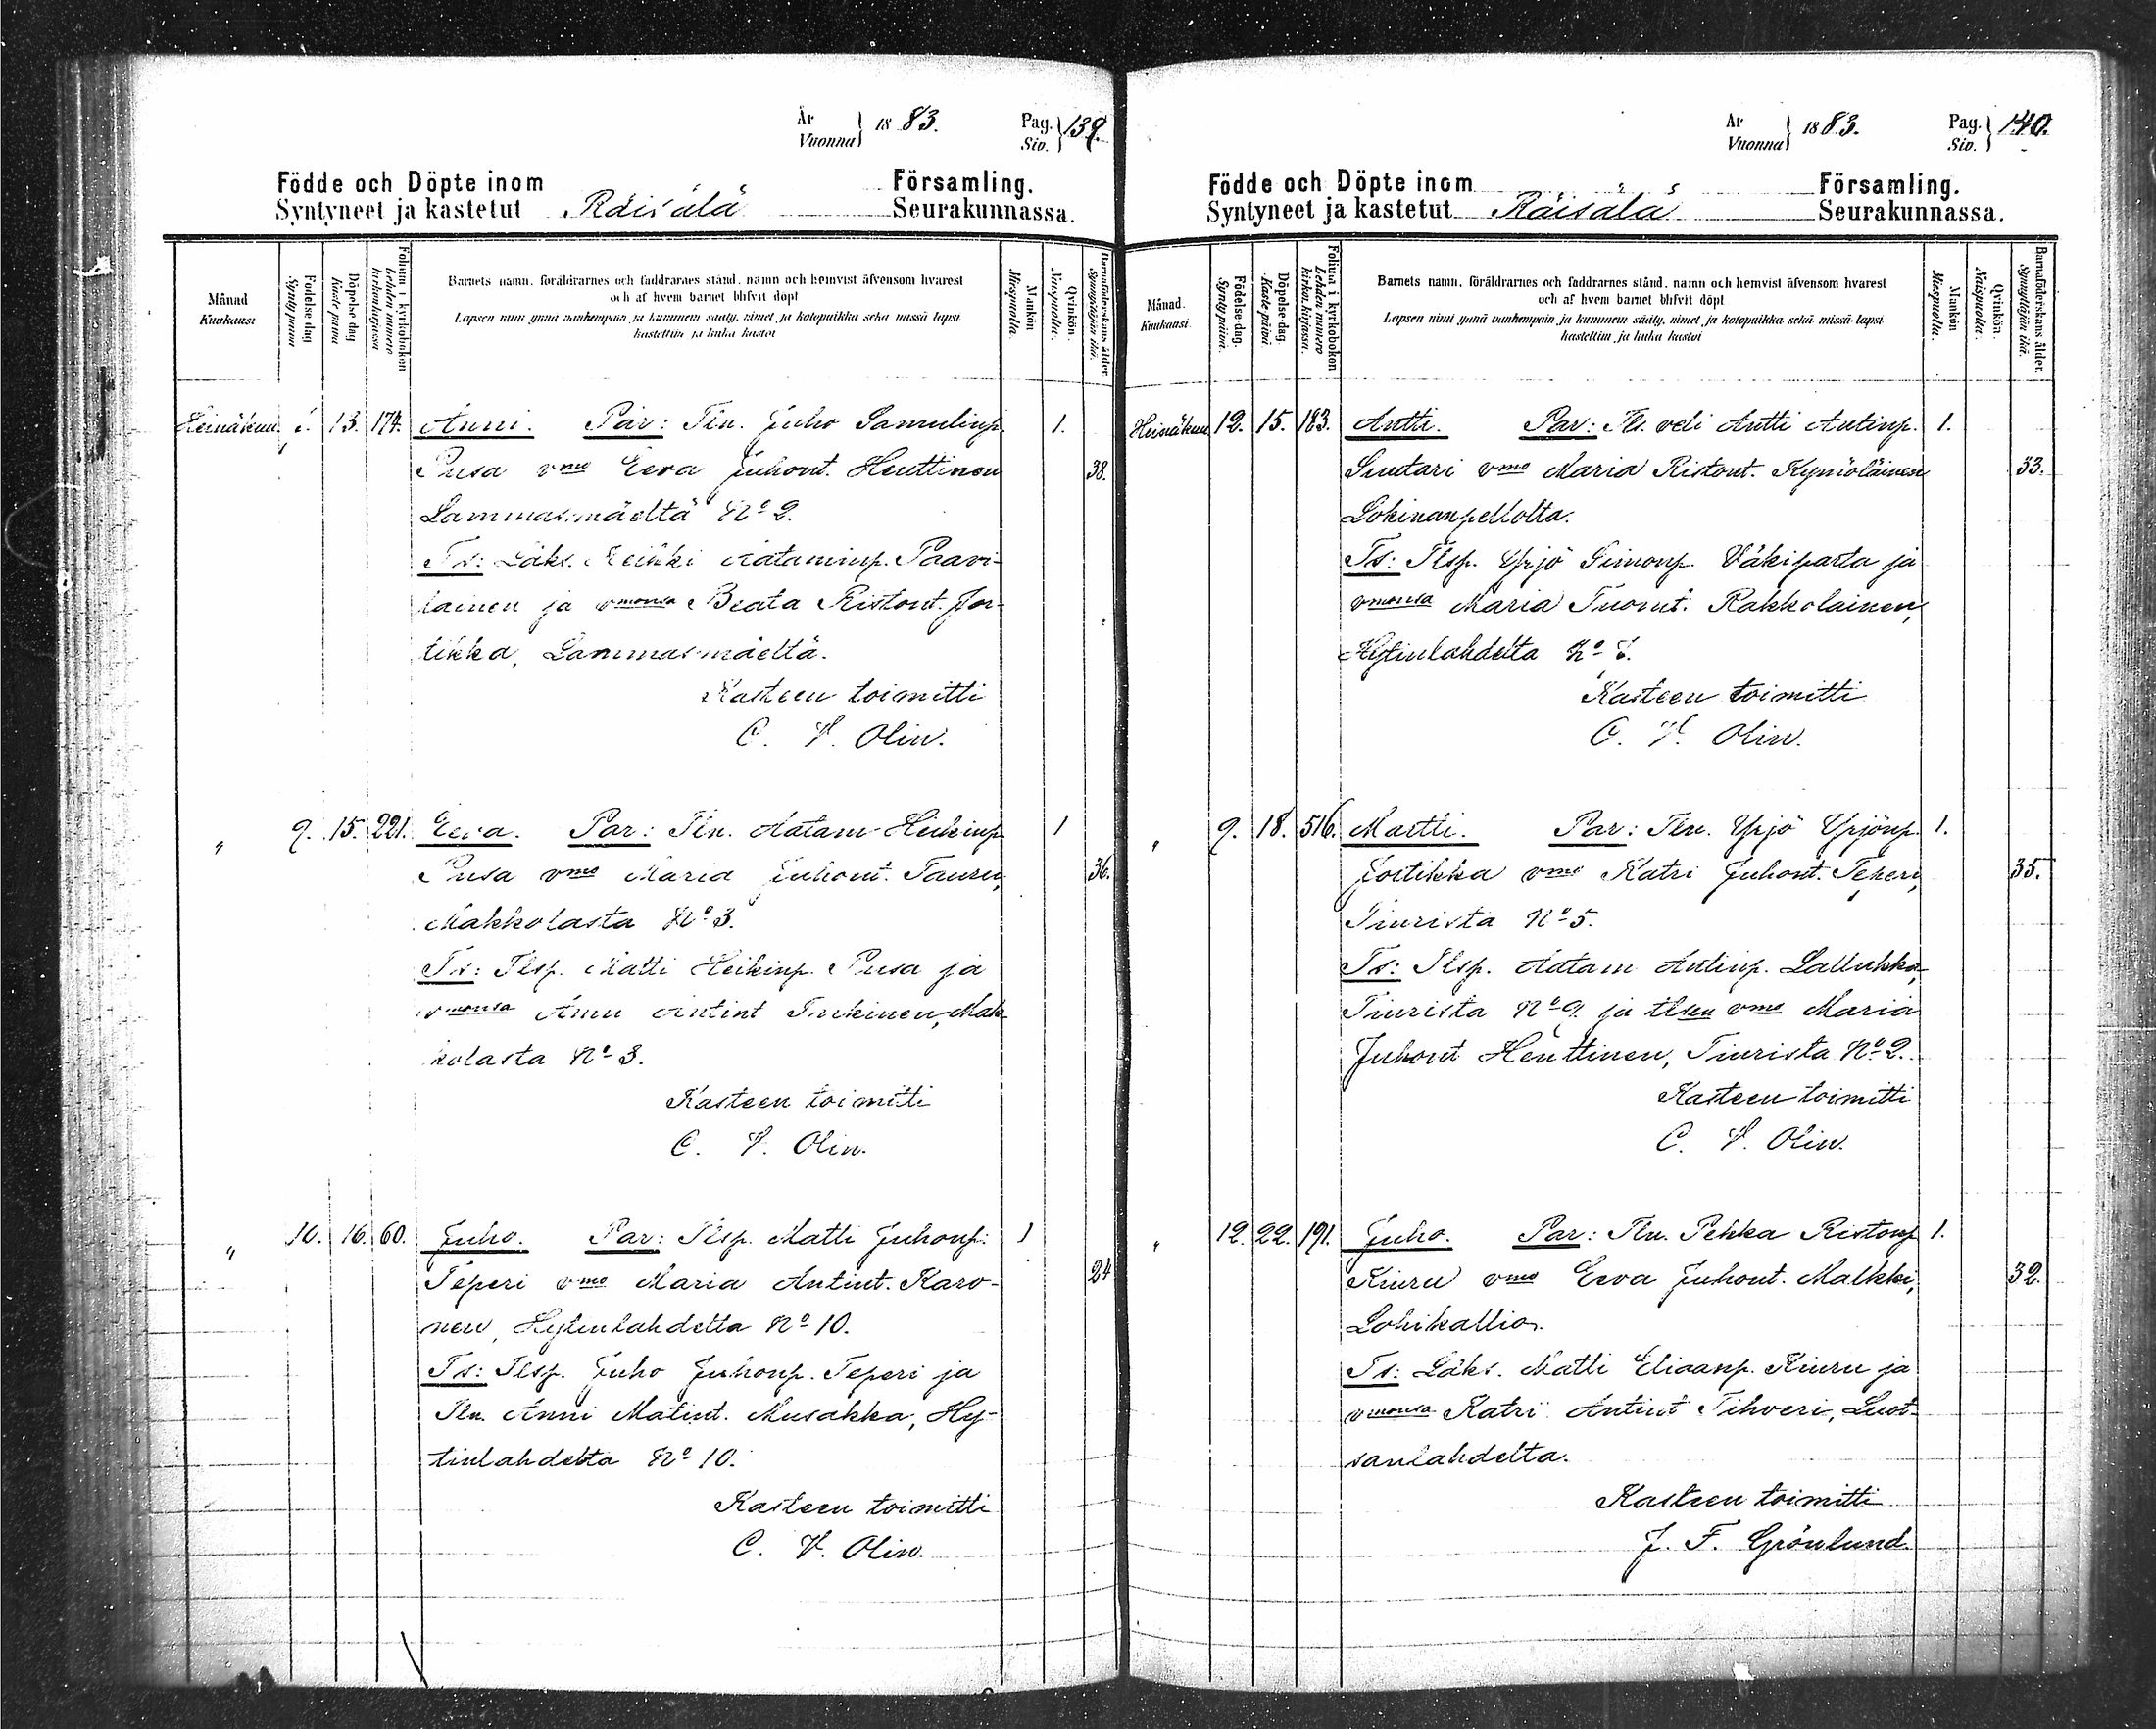 År
Vuonna } 1883.
Pag.
Siv. } 139.
Födde och Döpte inom Församling.
Syntyneet ja kastetut Räisälä Seurakunnassa.
Månad
Kuukausi
Födelse dag
Synty päivä
Döpelse dag
Kaste päivä
Folium i kyrkoboken
Lehden numero
kirkonkirjassa
Barnets namn, föräldrarnes och faddrarnes stånd, namn och hemvist äfvensom hvarest
och af hvem barnet blifvit döpt
Lapsen nimi ynnä vanhempain ja kummein sääty, nimet ja kotopaikka sekä missä lapsi
kastettiin ja kuka kastoi
Mankön
Miespuolta.
Qvinkön.
Naispuolta.
Barnaföderskans ålder.
Synnyttäjän ikä.
Heinäkuu 13. 174. Anni. Par: Tln. Juho Samulinp. 1.
Pusa vmo Eeva Juhont. Henttinen 38.
Lammasmäeltä No 2.
Ts: Läks. Heikki Aataminp. Paavi-
lainen ja vmonsa Beata Ristont. Jor-
tikka, Lammasmäeltä.
Kasteen toimitti
C. V. Olin.
" 9. 15. 221. Eeva. Par: Tln. Aatam Heikinp. 1
Pusa vmo Maria Juhont. Tauru, 36.
Makkolasta No 3.
Ts: Tlsp. Matti Heikinp. Pusa ja
vmonsa Anni Antint Inkinen, Mak-
kolasta No 3.
Kasteen toimitti
C. V. Olin.
" 10. 16. 60. Juho. Par: Tlsp. Matti Juhonp. 1
Teperi vmo Maria Antint. Karo- 24
nen, Hytinlahdelta No 10.
Ts: Tlsp. Juho Juhonp. Teperi ja
Tln. Anni Matint. Musakka, Hy-
tinlahdelta No 10.
Kasteen toimitti
C. V. Olin.
År
Vuonna } 1883.
Pag.
Siv. } 140.
Födde och Döpte inom Församling.
Syntyneet ja kastetut Räisälä Seurakunnassa.
Månad.
Kuukausi.
Födelse-dag.
Synty päivä.
Döpelse-dag.
Kaste-päivä.
Folium i kyrkoboken
Lehden numero
kirkon kirjassa.
Barnets namn, föräldrarnes och faddrarnes stånd, namn och hemvist äfvensom hvarest
och af hvem barnet blifvit döpt
Lapsen nimi ynnä vanhempain ja kummein sääty, nimet ja kotopaikka sekä missä lapsi
kastettiin ja kuka kastoi
Mankön
Miespuolta.
Qvinkön.
Naispuolta.
Barnaföderskans ålder.
Synnyttäjän ikä.
Heinäkuu 12. 15. 183. Antti. Par: Tl. veli Antti Antinp. 1.
Suutari vmo Maria Ristont. Kymöläinen 33.
Lokinanpellolta.
Ts: Tlsp. Yrjö Simonp. Väkiparta ja
vmonsa Maria Tuomt. Rakkolainen,
Hytinlahdelta No
Kasteen toimitti
C. V. Olin.
" 9. 18. 516. Martti. Par: Tln. Yrjö Yrjönp. 1.
Jortikka vmo Katri Juhont. Teperi, 35.
Tiurista No 5.
Ts: Tlsp. Aatam Antinp. Lallukka,
Tiurista No 9 ja tlsen vmo Maria
Juhont Henttinen, Tiurista No 2.
Kasteen toimitti
C. V. Olin.
" 12. 22. 191. Juho. Par: Tln. Pekka Ristonp 1.
Kiuru vmo Eeva Juhont. Malkki, 32.
Lohikallio.
Ts: Läks. Matti Eliaanp. Kiuru ja
vmonsa Katri Antint Tihveri, Luot-
sanlahdelta.
Kasteen toimitti
J. F. Grönlund.